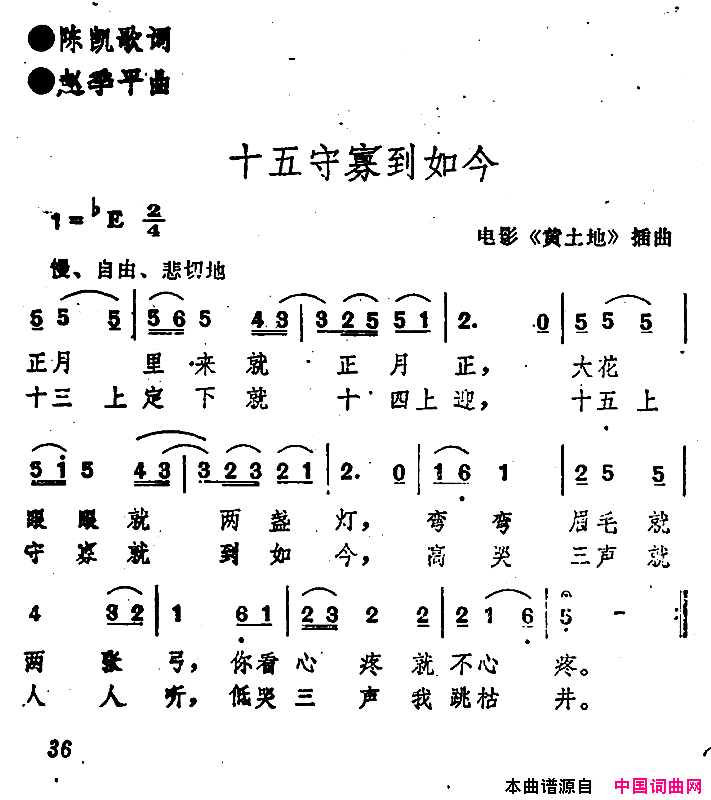 ●陈凯歌词
●赵季平曲
十五守寡到如今
1=♭E 2/4
电影《黄土地》插曲
慢、自由、悲切地
5 5 5 | 5 6 5 4 3 | 3 2 5 5 1 | 2. 0 | 5 5 5 |
正月 里来就 正月正， 大花
十三上定下就 十四上迎， 十五上
5 i 5 4 3 | 3 2 3 2 1 | 2. 0 | 1 6 1 | 2 5 5 |
眼眼就 两盏灯， 弯弯眉毛就
守寡就 到如今， 高哭三声就
4 3 2 | 1 6 1 | 2 3 2 2 | 2 1 6 | 5 - :||
两张弓，你看心疼就不心疼。
人人听，低哭三声我跳枯井。
36
本曲谱源自 中国词曲网